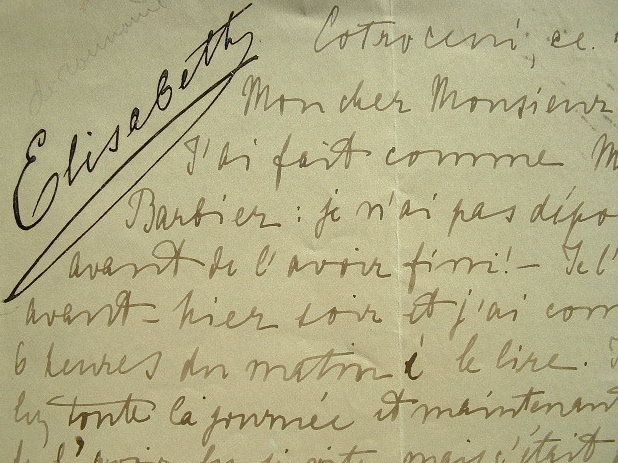 de roumanie
Elisabeth
Cotroceni, ce
Mon cher Monsieur
J'ai fait comme M
Barbier : je n'ai pas dépo
avant de l'avoir fini! – Je l'
avant-hier soir et j'ai com
6 heures du matin à le lire. J
lu toute la journée et maintenant
de l'avoir lu si vite, mais c'était